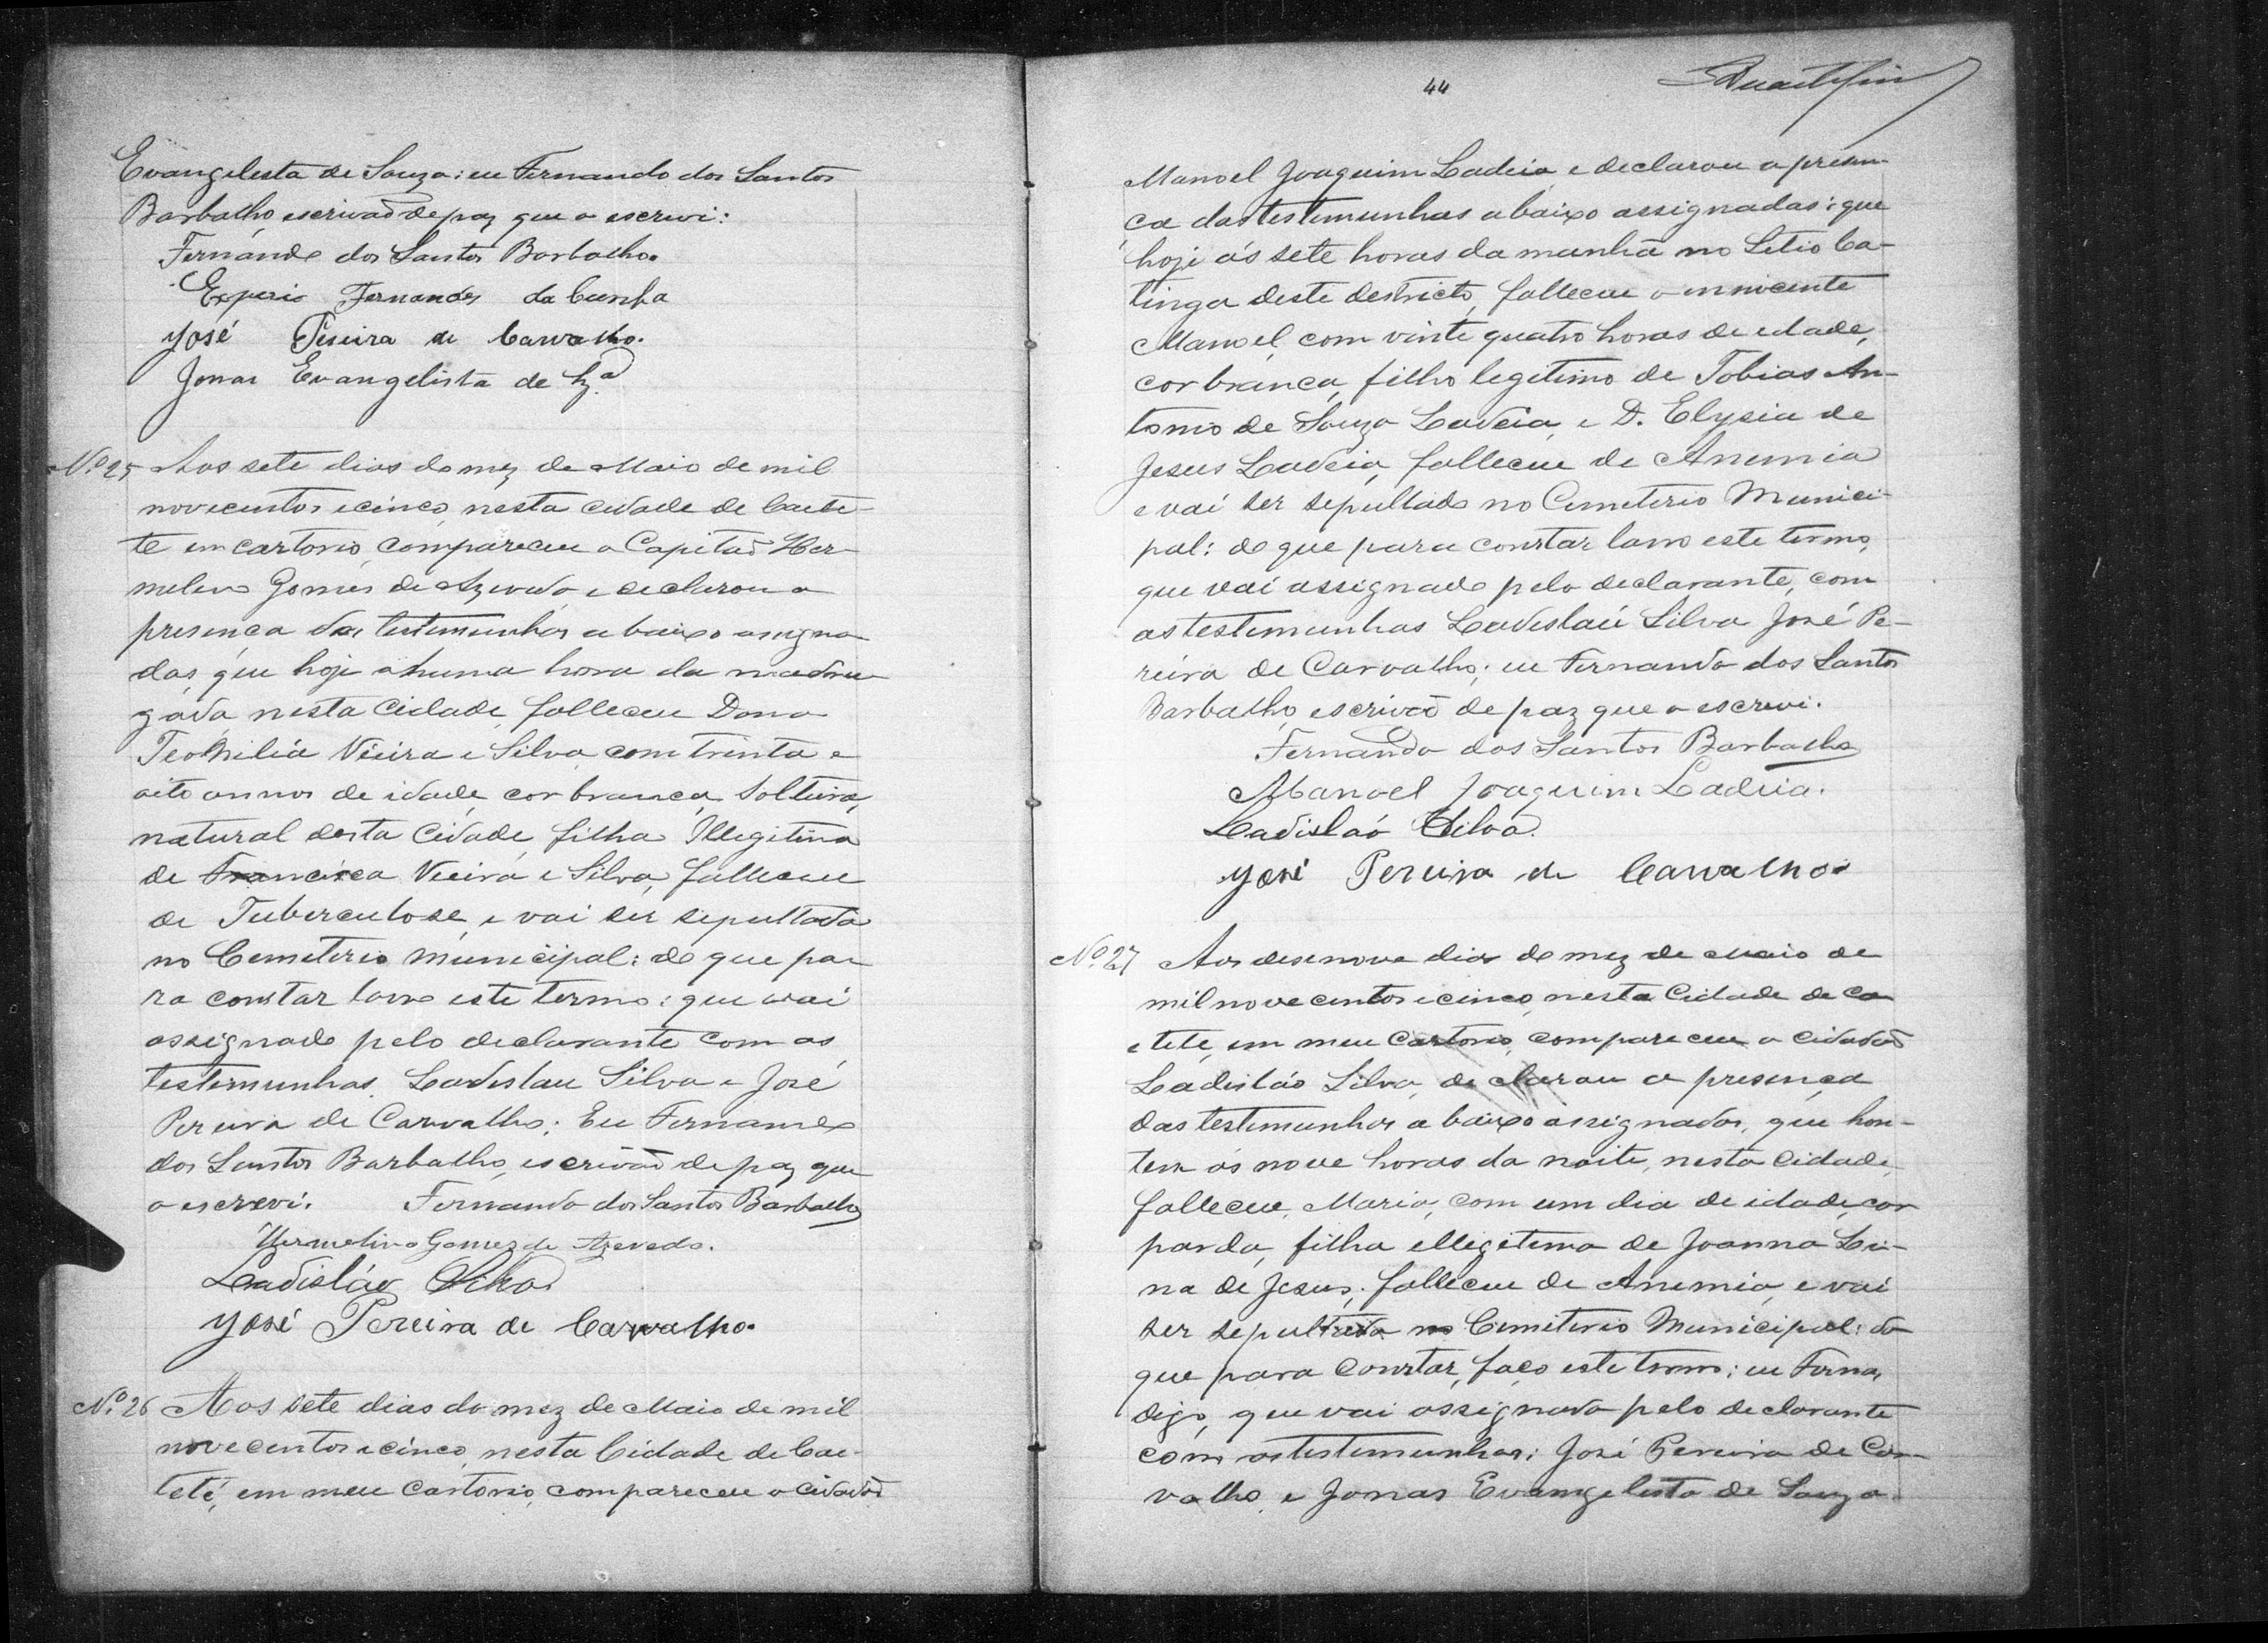 Evangelesta de Souza: eu Fernando dos Santos
Barbalho, escrivaõ de paz que o escrevi:
Fernando dos Santos Barbalho.
Experio Fernandes da Cunha
José Pereira de Carvalho.
Jonas Evangelista de Sz.a
N.º 25 Aos sete dias do mez de Maio de mil
novecentos e cinco, nesta cidade de Caete-
te em cartorio, compareceu o Capitaõ Her-
melino Gomes de Azevedo e declarou a
presença das testemunhas a baixo assigna-
das, que hoje a huma hora da madru-
gada, nesta Cidade, falleceu Dona
Teophilia Vieira e Silva, com trinta e
oito annos de idade, cor branca, Solteira,
natural desta Cidade, filha Illegitima
de Francisca Vieira e Silva, falleceu
de Tuberculose, e vai ser sepultada
no Cemeterio Municipal: do que pa-
ra constar lavro este termo: que vai
assignado pelo declarante com as
testemunhas, Ladeslau Silva e José
Pereira de Carvalho; Eu Fernando
dos Santos Barbalho, escrivaõ de paz que
o escrevi. Fernando dos Santos Barbalho
Hermelino Gomez de Azevedo.
Ladisláo Silva
José Pereira de Carvalho.
N.º 26 Aos sete dias do mez de Maio de mil
novecentos e cinco, nesta Cidade de Cae-
teté, em meu Cartorio, compareceu o cidadaõ
44
Manoel Joaquim Ladeia, e declarou a presen-
ça das testemunhas abaixo assignadas: que
hoje ás sete horas da manhã no Sitio Ca-
tinga deste destricto, falleceu o innocente
Manoel, com vinte quatro horas de edade,
cor branca, filho legitimo de Tobias An-
tonio de Souza Ladeia, e D. Elysia de
Jesus Ladeia, falleceu de Anemia
e vai ser sepultado no Cemeterio Munici-
pal: do que para constar lavro este termo,
que vai assignado pelo declarante, com
as testemunhas Ladeslaú Silva José Pe-
reira de Carvalho; eu Fernando dos Santos
Barbalho, escrivaõ de paz que o escrevi.
Fernando dos Santos Barbalho
Manoel Joaquim Ladeia.
Ladisláo Silva.
José Pereira de Carvalho
N.º 27 Aos desenove dias do mez de Maio de
mil nove centos e cinco, nesta Cidade de Ca
e tete, em meu Cartorio, compareceu o cidadaõ
Ladisláo Silva, declarou a presença
das testemunhas a baixo assignados, que hon-
tem ás nove horas da noite, nesta Cidade,
falleceu, Maria, com um dia de idade, cor
parda, filha illegitema de Joanna Le-
na de Jesus; falleceu de Anemia, e vai
ser sepultada no Cemiterio Municipal: do
que para constar, faço este termo; eu Ferna,
digo, que vai assignado pelo declarante
com as testemunhas; José Pereira de Car-
valho, e Jonas Evangelista de Souza.